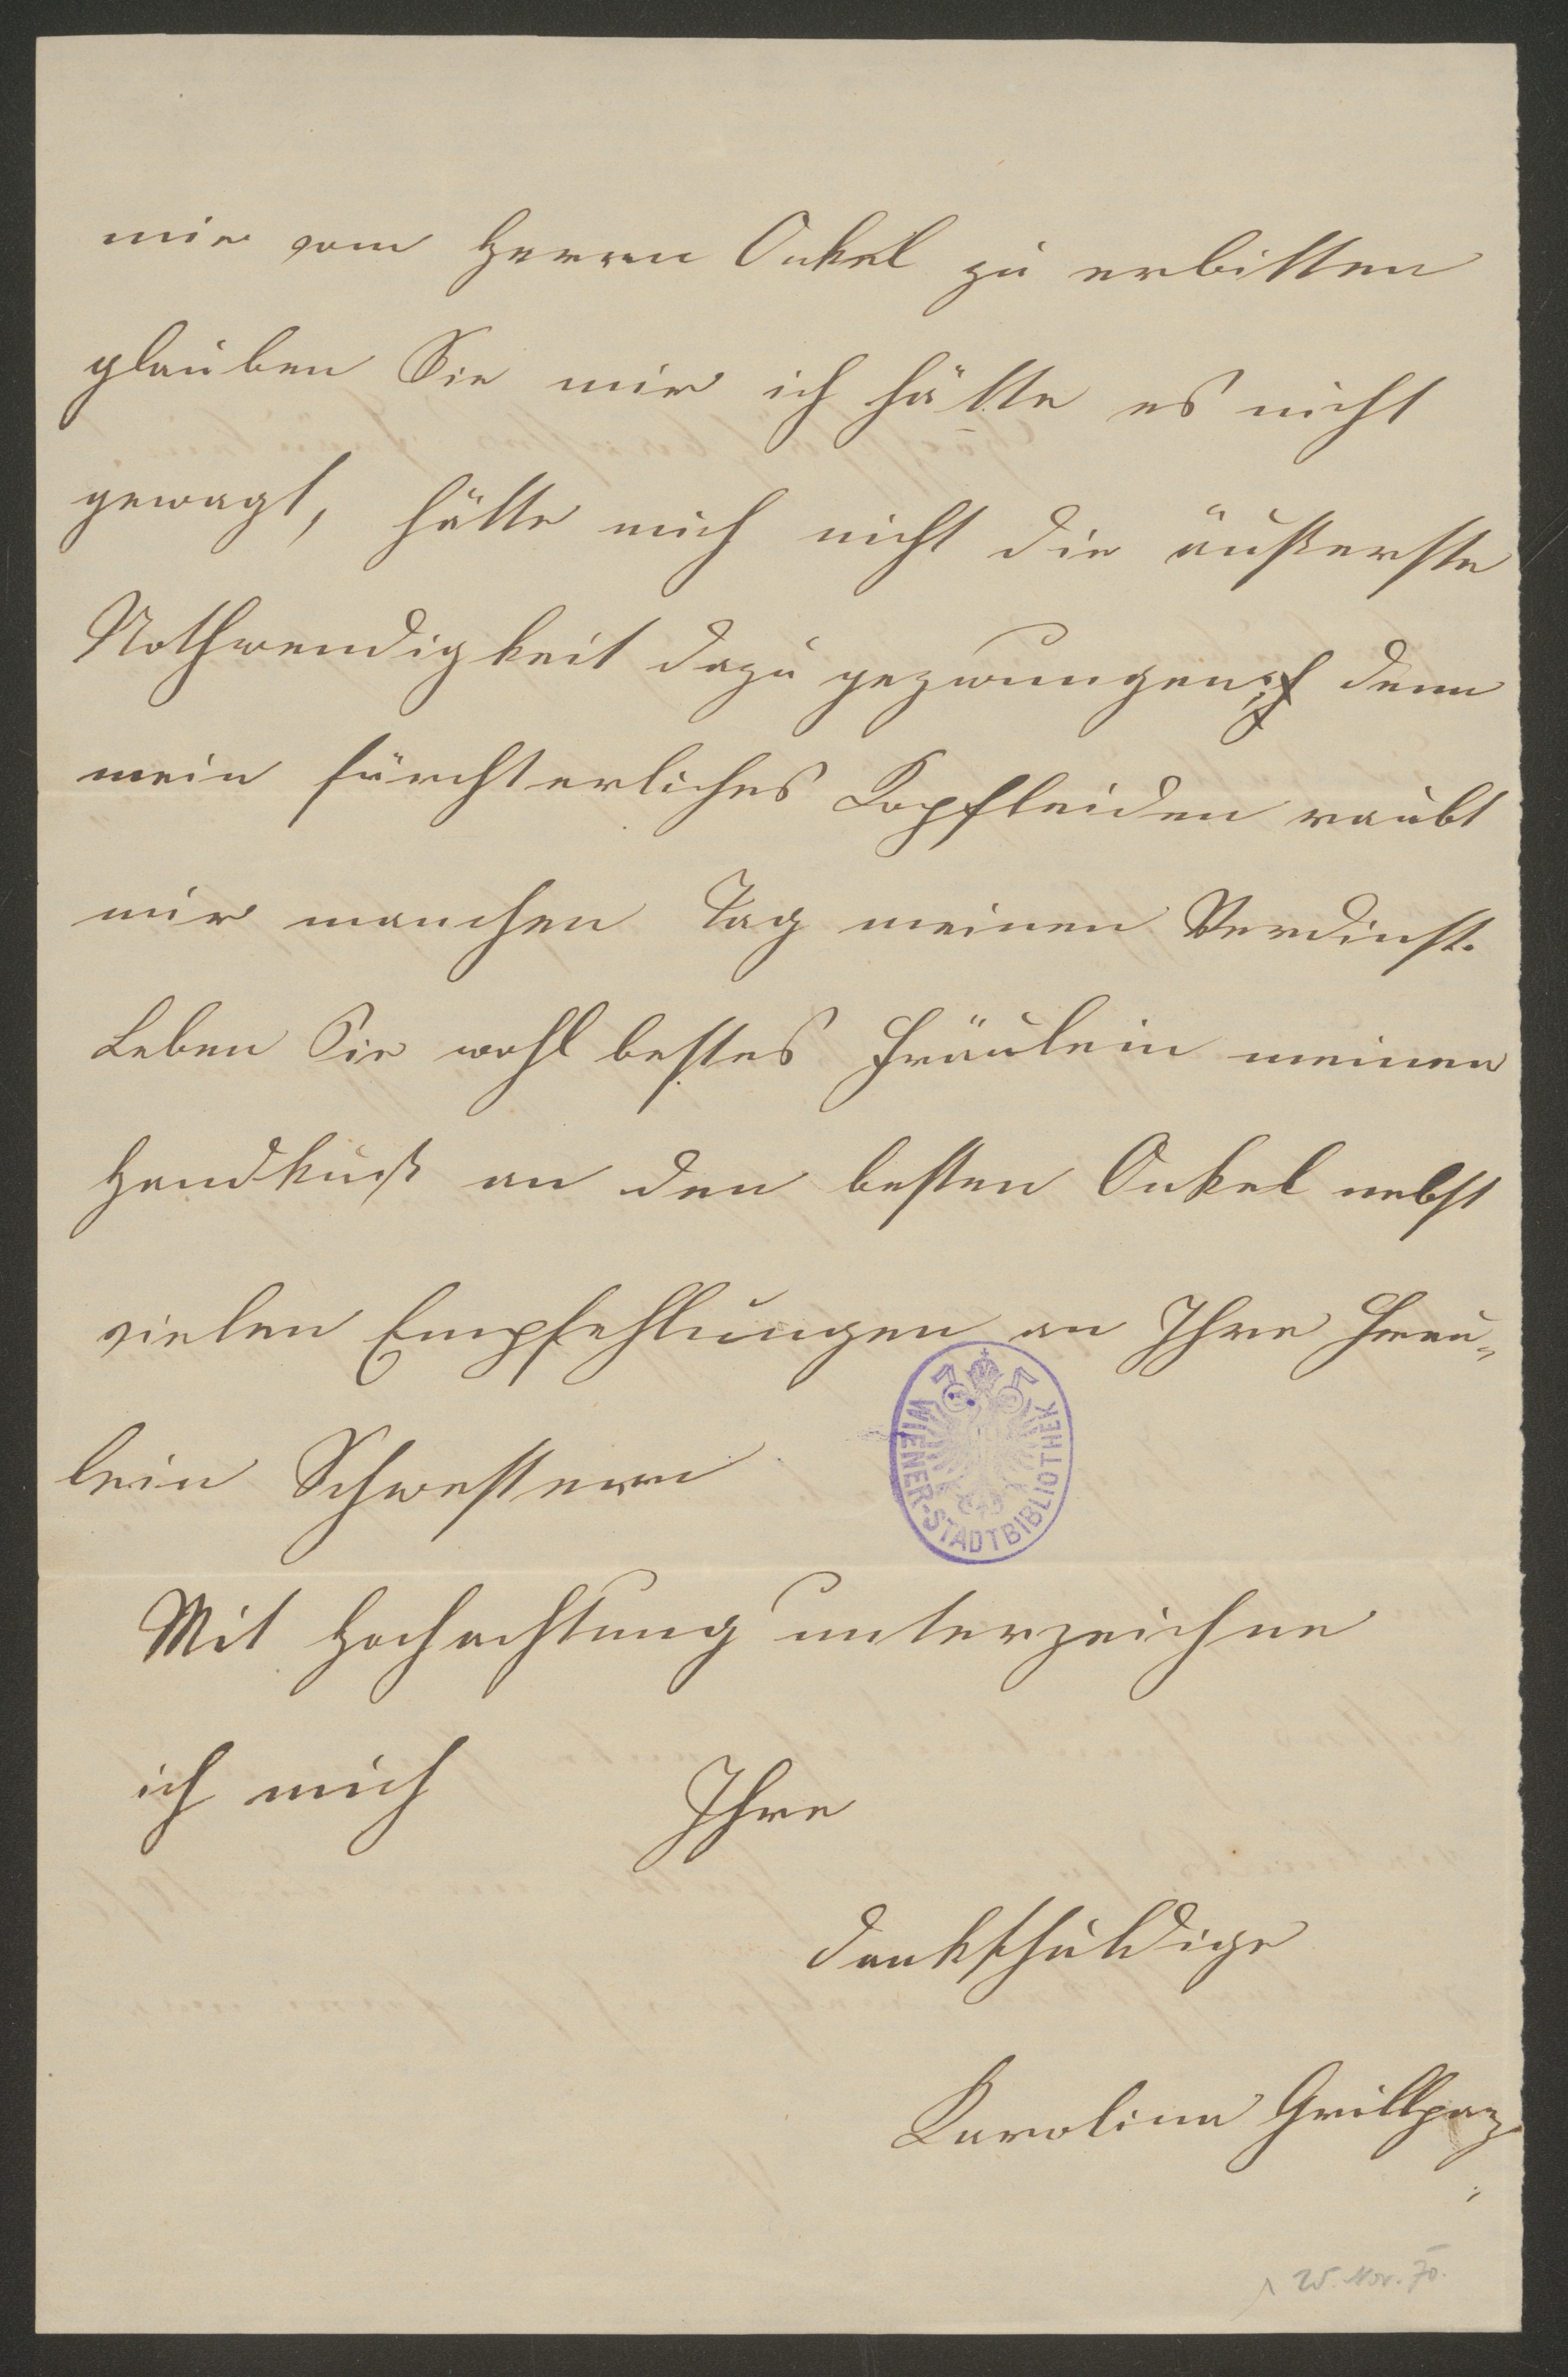 mir vom Herrn Onkel zu erbitten
glauben Sie mir ich hätte es nicht
gewagt, hätte mich nicht die äußerste
Nothwendigkeit dazu gezwungen; denn
mein fürchterliches Kopfleiden raubt
mir manchen Tag meinen Verdinst.
Leben Sie wohl bestes Fräulein meinen
Handkuß an den besten Onkel nebst
vielen Empfehlungen an Ihre Freu„
lein Schwestern
WIENER-STADTBIBLIOTHEK
Mit Hochachtung unterzeichne
ich mich Ihre
dankschuldige
Karolina Grillparz
25. Nov. 70.